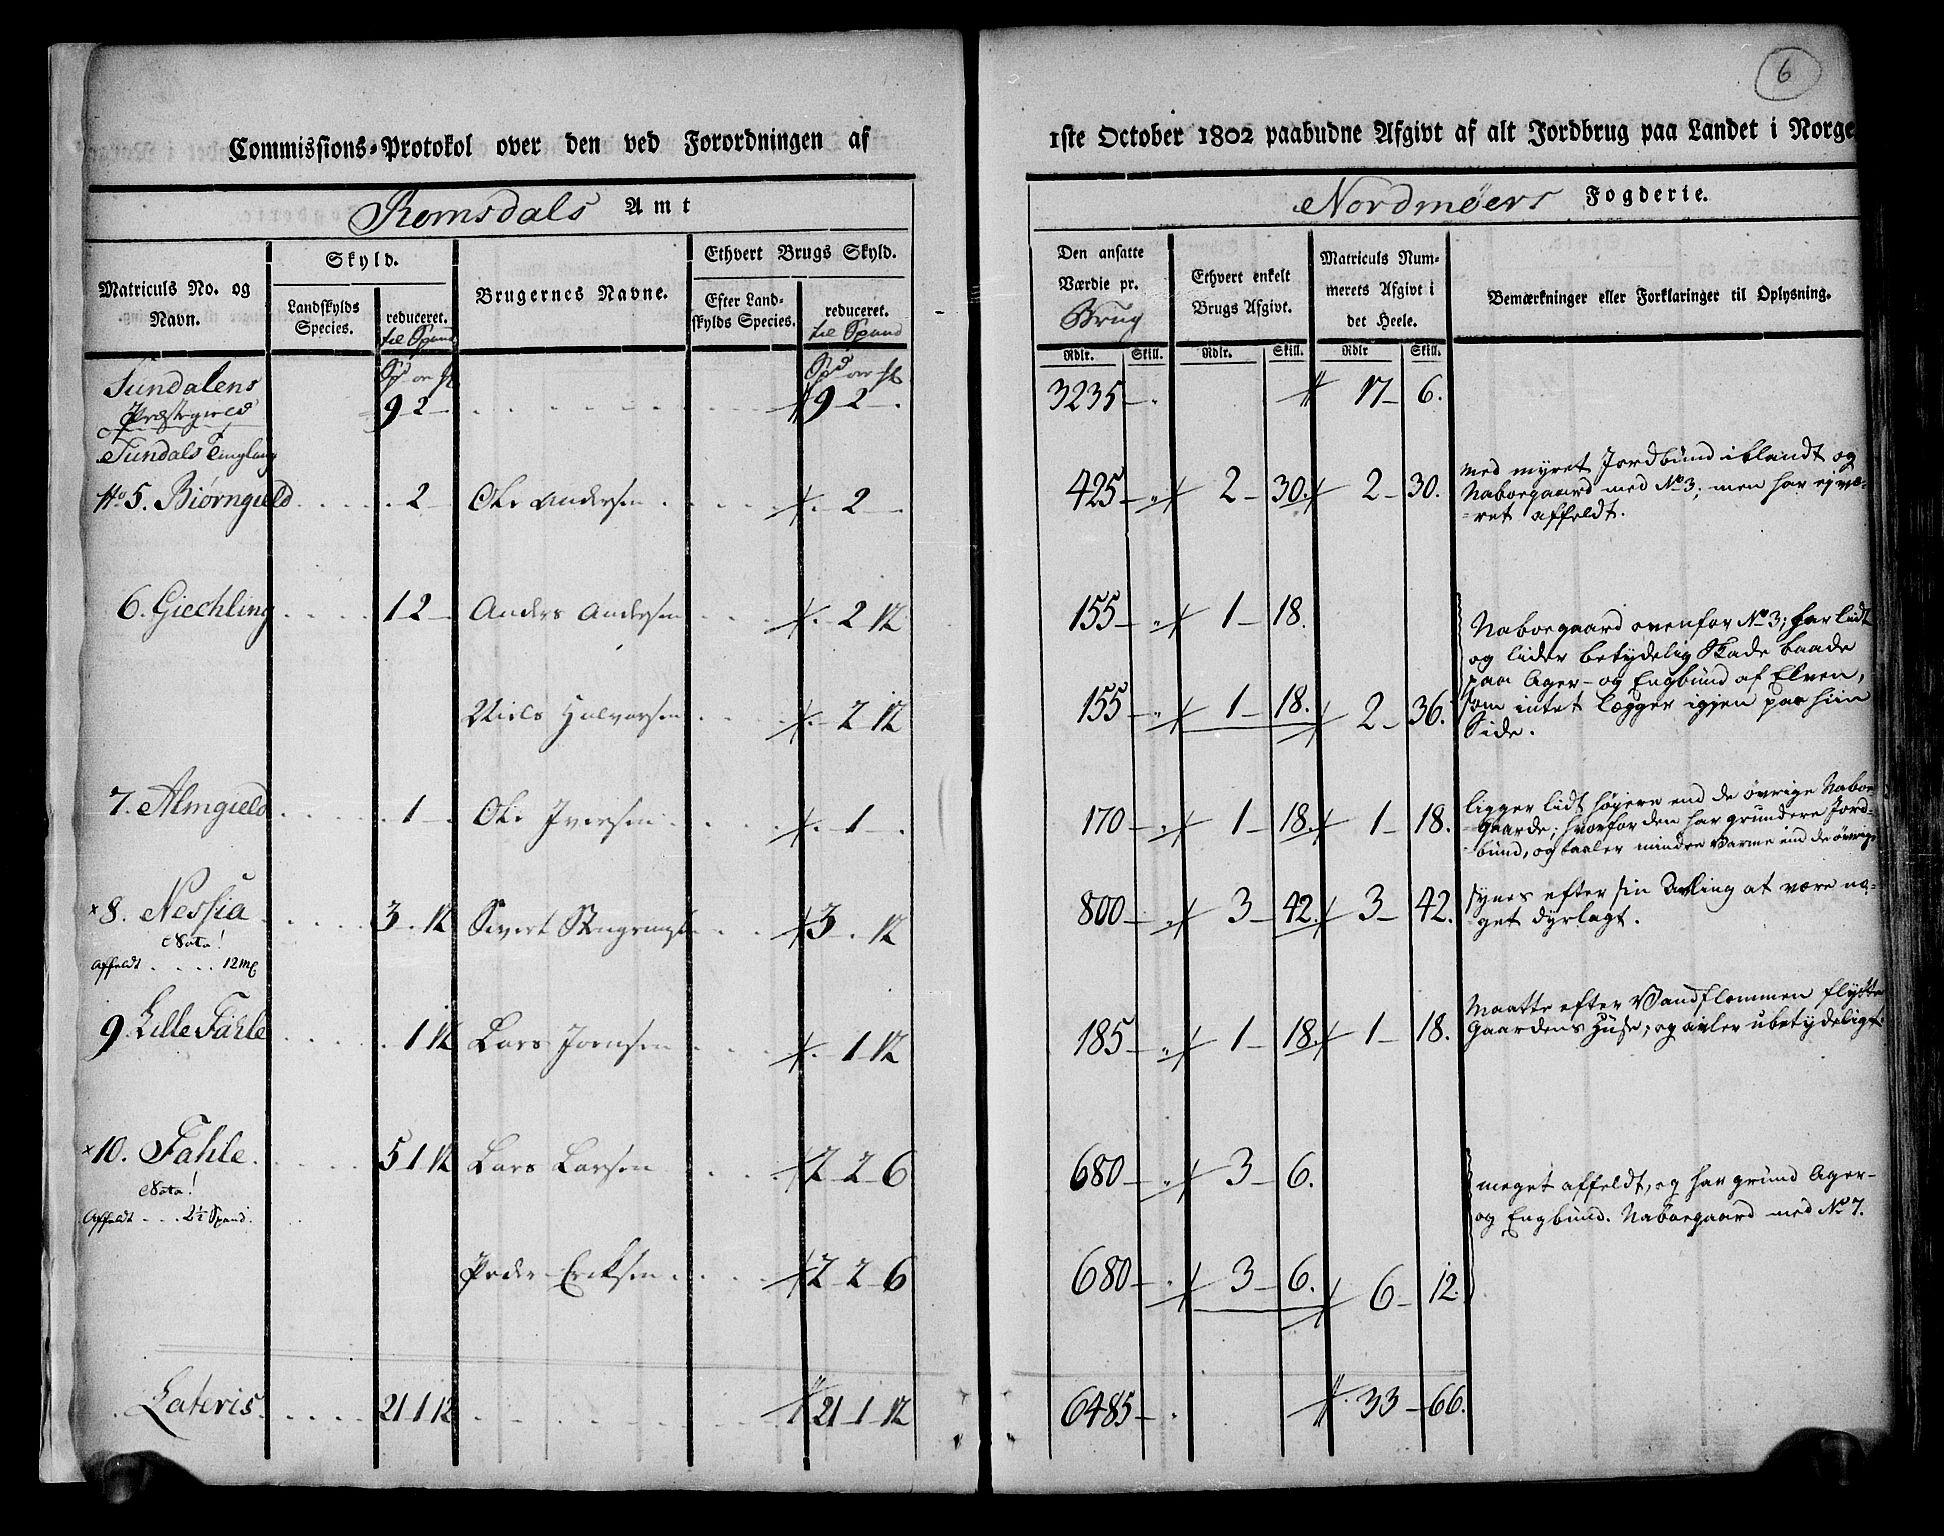 6
Commissions-Protokol over den ved Forordningen af
1ste October 1802 paabudne Afgivt af alt Jordbrug paa Landet i Norge
Romsdals Amt
Nordmøers Fogderie.
Matriculs No. og Navn.
Skyld.
Landskylds Species.
reduceret. til Spand
Brugernes Navne.
Ethvert Brugs Skyld.
Efter Landskylds Species.
reduceret. til Spand
Den ansatte Værdie pr. Brug
Ethvert enkelt Brugs Afgivt.
Matriculs Nummerets Afgivt i det Heele.
Bemærkninger eller Forklaringer til Oplysning.
Rdlr. Skill. Rdlr. Skill. Rdlr Skill.
Sundalens
Præstegield
9 2 - 9 2 - 3235 - 17 - 6.
af
Sundals Tinglaug
No 5. Biørngield 2 Ole Andersen 2 - 425 - 2 - 30. 2 - 30.
Med myret Jordbund iblandt og
Naboegaard med No 3; men har ej væ-
ret affeldt.
6. Giechling 1 2 - Anders Andersen 2 12 155 - 1 - 18.
Niels Halvorsen 2 12 155 - 1 - 18. 2 - 36.
Naboegaard ovenfor No 3; har lidt
og lider betydelig Skade baade
paa Ager- og Engbund af Elven,
som intet lægger igjen paa hiin
Side.
7. Almgield 1 - Ole Iversen 1 - 170 - 1 - 18. 1 - 18.
ligger lidt høyere end de øvrige Naboe-
Gaarde; hvorfor den har grundere Jord-
bund, og taaler mindre Varme end de øvrige
×8. Nessia 3 . 12 Sivert 3 . 12 800 - 3 - 42. 3 - 42.
Nota!
Affeldt 12 mſ
synes efter sin Avling at være no-
get dyrlagt.
9. Lille Fahle 1 12 Lars Joensen 1 12 185 - 1 - 18. 1 - 18.
Maatte efter Vandflommen flytte
Gaardens Huse; og avler ubetydeligt
×10. Fahle 5 1 12 Lars Larsen 2 2 6 680 - 3 - 6.
Nota!
Affeldt 2½ Spand.
meget affeldt, og har grund Ager-
og Engbund. Naboegaard med No 7.
Peder Ericksen 2 2 6 680 - 3 - 6. 6 - 12.
Lateris 21 1 12 21 1 12 6485 - 33 - 66.